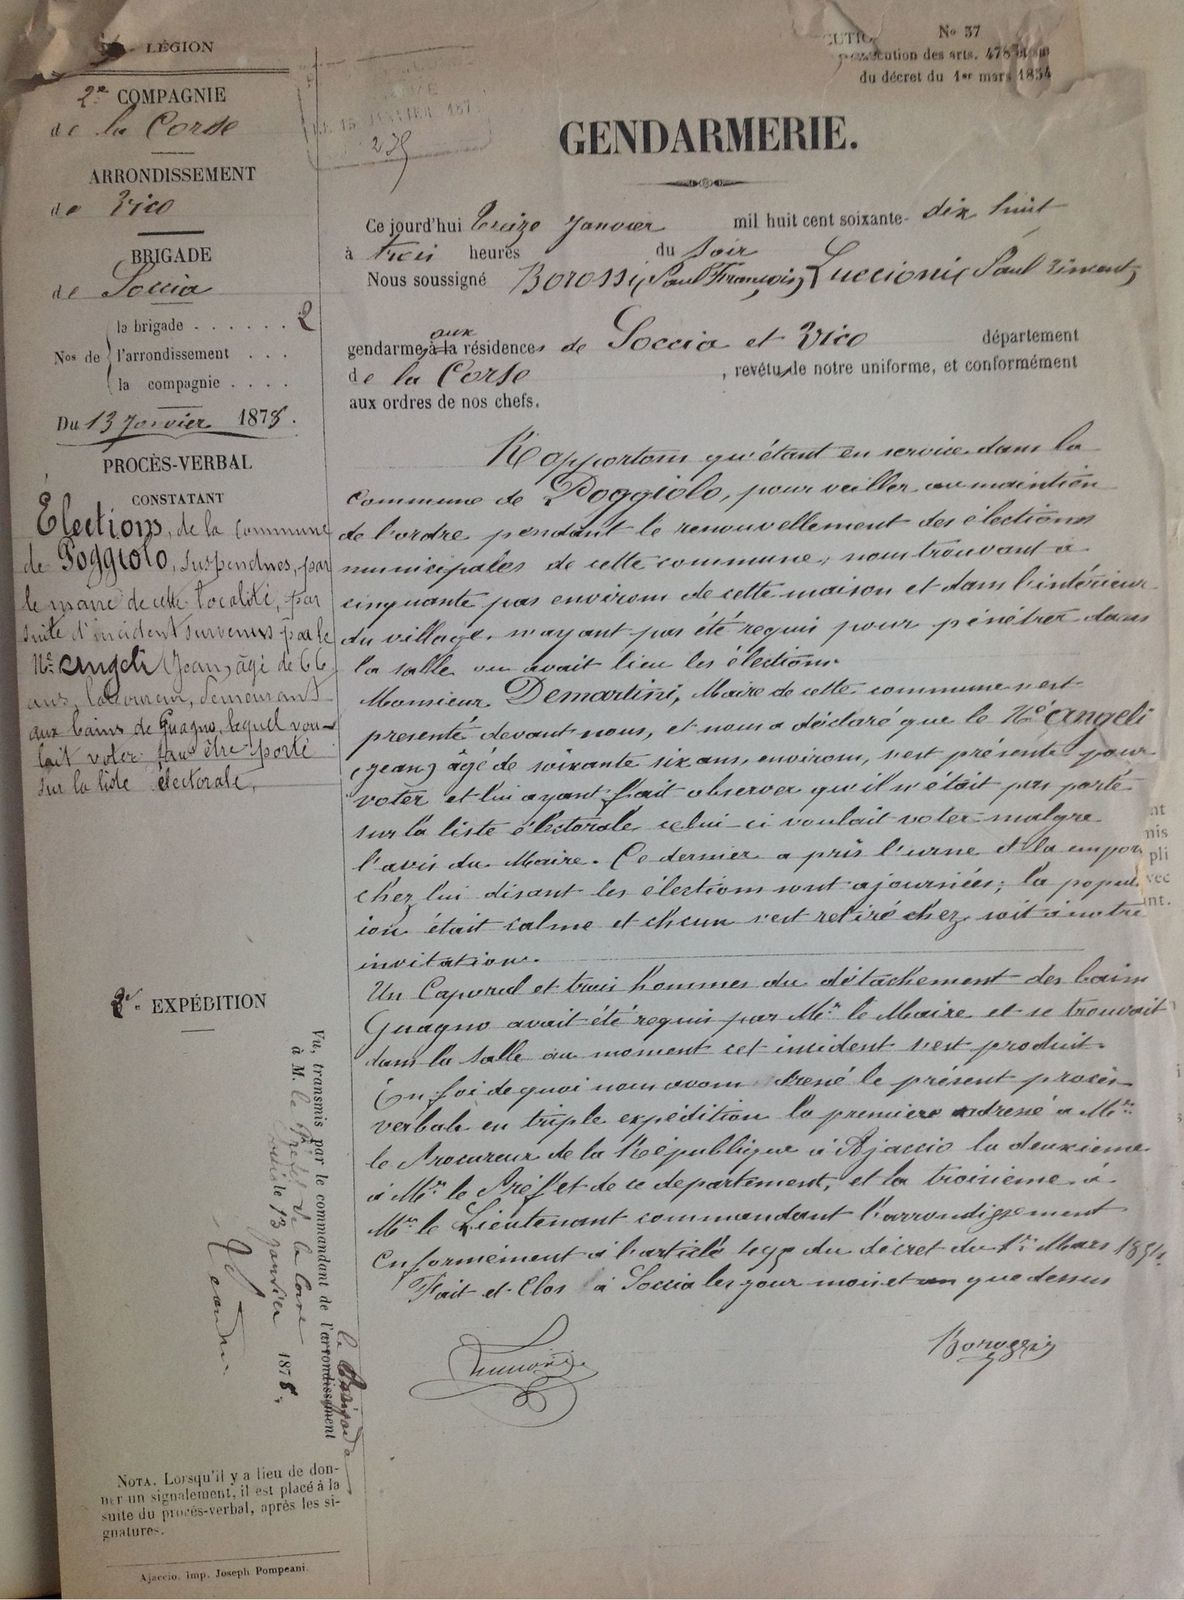 LÉGION
2e COMPAGNIE
de la Corse
ARRONDISSEMENT
de Vico
BRIGADE
de Soccia
la brigade . . . . . . 2
Nos de l'arrondissement . . .
la compagnie . . . .
Du 13 Janvier 1878.
PROCÈS-VERBAL
CONSTATANT
Élections, de la commune
de Poggiolo, suspendues, par
le maire de cette localité, par
suite d'incident survenus par le
Né Angeli (Jean) âgé de 66
ans, laboureur, demeurant
aux bains de Guagno, lequel vou-
lait voter sans être porté
sur la liste électorale.
2e EXPÉDITION
Vu, transmis par le commandant de l'arrondissement
le Brigade
à M. le Préfet de la Corse
le 13 janvier 1878.
NOTA. Lorsqu'il y a lieu de don-
ner un signalement, il est placé à la
suite du procès-verbal, après les si-
gnatures.
Ajaccio, Imp. Joseph Pompeani.
No 37
cution des arts.
du décret du 1er mars 1854
15 JANVIER 187
GENDARMERIE.
Ce jourd'hui treize Janvier mil huit cent soixante- dix huit
à trois heures du soir
Nous soussigné Borossi (Paul François) Luccioni (Paul Vincent)
aux
gendarmes à la résidences de Soccia et Vico département
de la Corse , revêtus de notre uniforme, et conformément
aux ordres de nos chefs.
Rapportons qu'étant en service dans la
commune de Poggiolo, pour veiller au maintien
de l'ordre pendant le renouvellement des élections
municipales de cette commune; nous trouvant à
cinquante pas environ de cette maison et dans l'intérieur
du village, n'ayant pas été requis pour pénétrer dans
la salle ou avait lieu les élections.
Monsieur Demartini, Maire de cette commune s'est
présenté devant nous, et nous a déclaré que le Né Angeli
(Jean) âgé de soixante six ans, environs, s'est présenté pour
voter et lui ayant fait observer qu'il n'était pas porté
sur la liste électorale, celui-ci voulait voter malgré
l'avis du Maire. Ce dernier a pris l'urne et la empor
chez lui disant les élections sont ajournées; la popul
ion était calme et chcun s'est retiré chez soit à notre
invitation.
Un Caporal et trois hommes du détachement des bains
Guagno avait été requis par Mr le Maire et se trouvait
dans la salle au moment cet incident s'est produit.
En foi de quoi nous avons dressé le présent procès
verbal en triple expédition la première adressé à Mr
le Procureur de la République à Ajaccio la deuxième
à Mr le Préfet de ce département, et la troisième à
Mr le Lieutenant commandant l'arrondissement
Conformément à l'article 495 du décret du 1er Mars 1854
Fait et Clos à Soccia les jour mois et an que dessus
Borossi
nt
mis
pli
vec
ant.